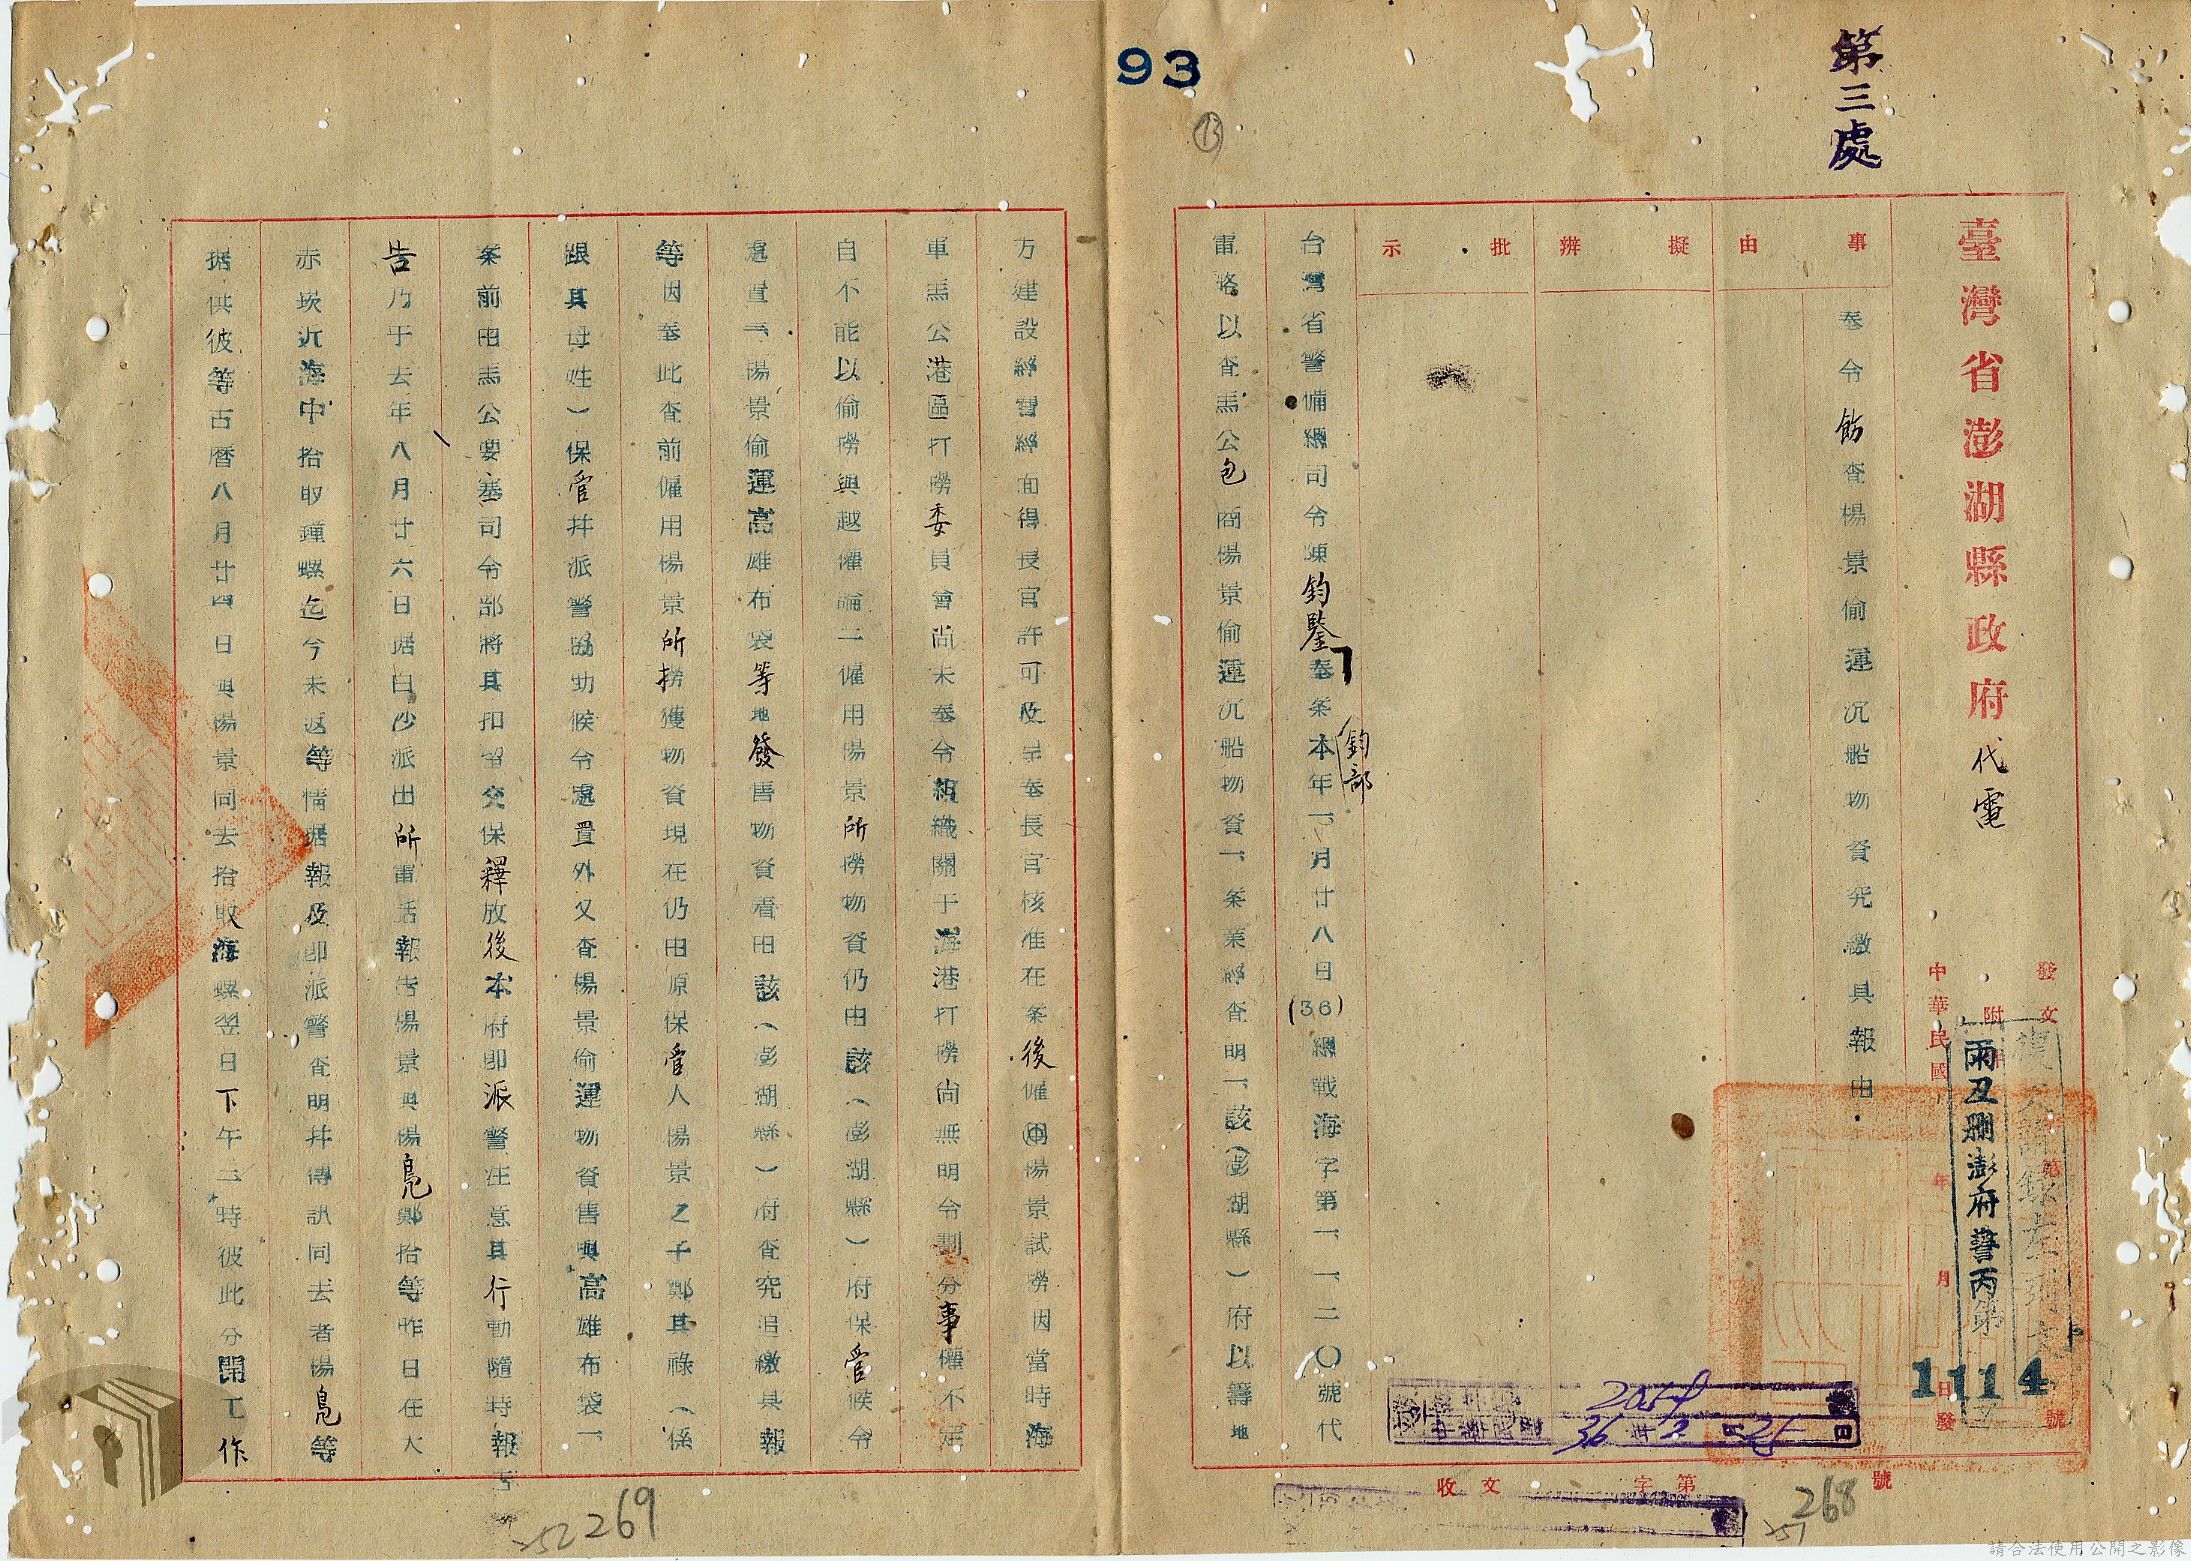 第三處
93
13
臺灣省澎湖縣政府代電
發文
附件
中華民國 年 月 日發
第 號
丑刪澎府警丙第
1114
事由
擬辦
批示
奉令飭查楊景偷運沉船物資究繳具報由
台灣省警備總司令陳鈞鑒奉鈞部本年一月廿八日(36)總戰海字第一一二〇號代
電略以查馬公包商楊景偷運沉船物資一案業經查明一、該(澎湖縣)府以籌地
方建設經費經面得長官許可及呈奉長官核准在案後僱用楊景試撈因當時海
軍馬公港區打撈委員會尚未奉令組織關于海港打撈尚無明令劃分事僱不定
自不能以偷撈與越僱論二僱用楊景所撈物資仍由該(澎湖縣)府保管候令
處置二、楊景偷運高雄布袋等地發售物資着由該(澎湖縣)府查究追繳具報
等因奉此查前僱用楊景所撈獲物資現在仍由原保管人楊景之子鄭其祿(係
跟其母姓)保管并派警協助候令處置外又查楊景偷運物資售與高雄布袋一
案前由馬公要塞司令部將其扣留交保釋放後本府即派警注意其行動隨時報告
告乃于去年八月廿六日据白沙派出所電話報告楊景與楊鳧鄭抬等昨日在大
赤崁近海中拾取鐘螺迄今未返等情据報及即派警查明并傳訊同去者楊鳧等
据供彼等古曆八月廿四日與楊景同去拾取海螺翌日下午二時彼此分開工作
收文 字第 號
2044
36 2 25
268
251
269
252
請合法使用公開之影像